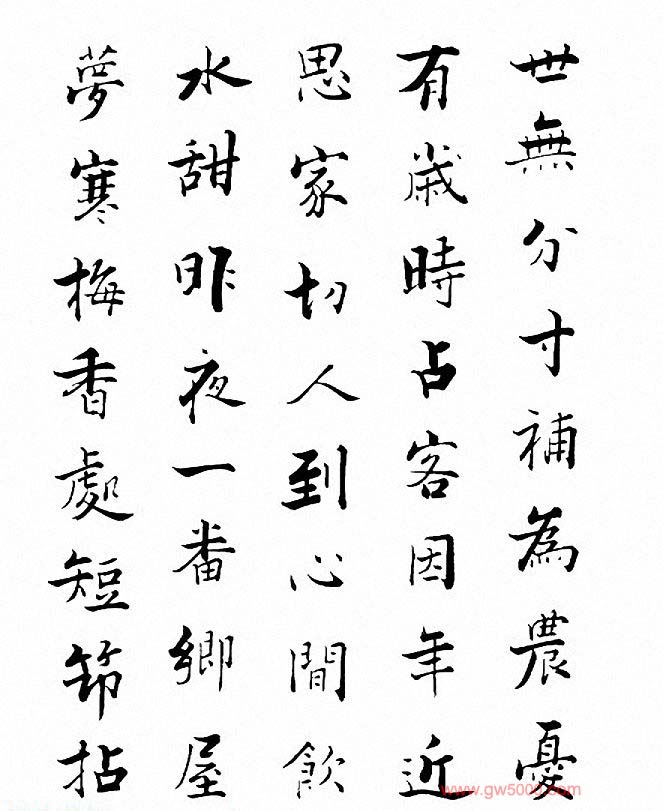 世無分寸補為農憂
有歲時占客因年近
思家切人到心間飲
水甜昨夜一番鄉屋
夢寒梅香處短笻拈
www.gw5000.com